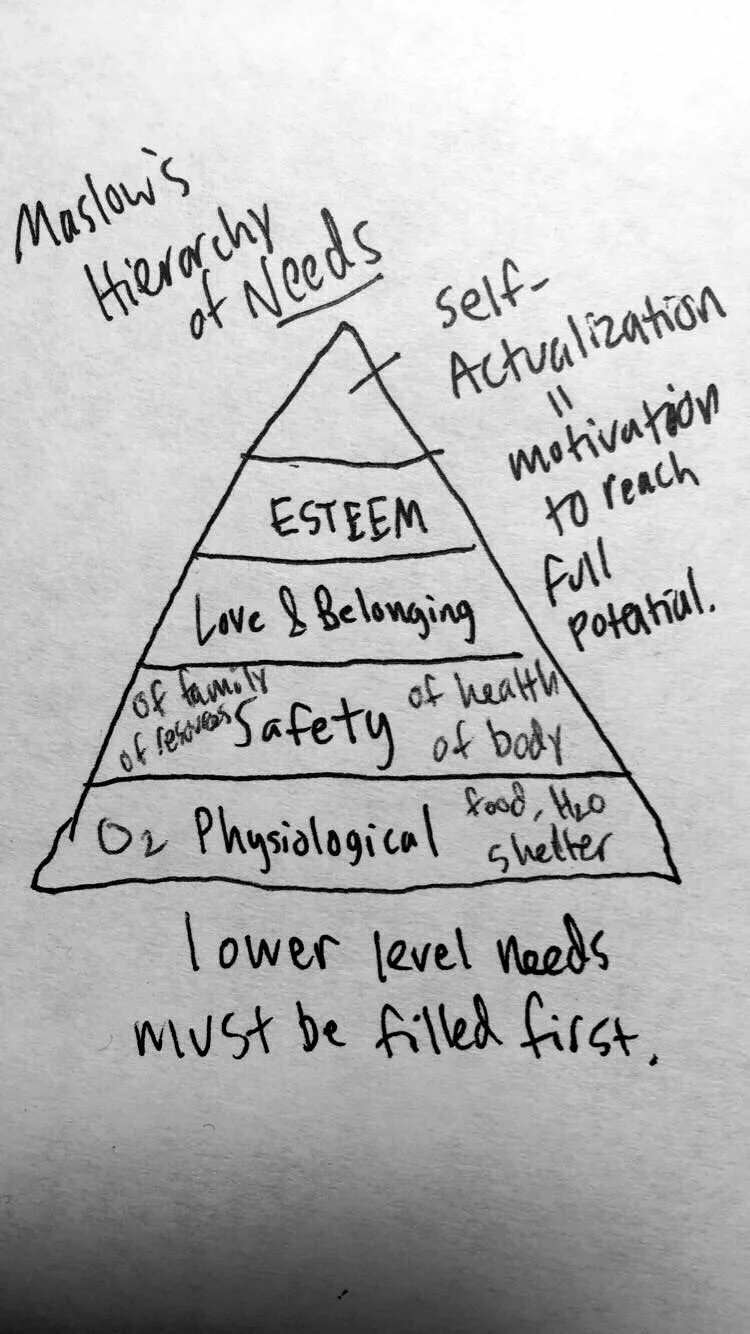 Maslow's
Hierarchy
of Needs
Self-
Actualization
=
motivation
to reach
full
potential.
ESTEEM
Love & Belonging
of family
of resources
Safety
of health
of body
O2 Physiological
food, H2O
shelter
lower level needs
must be filled first.